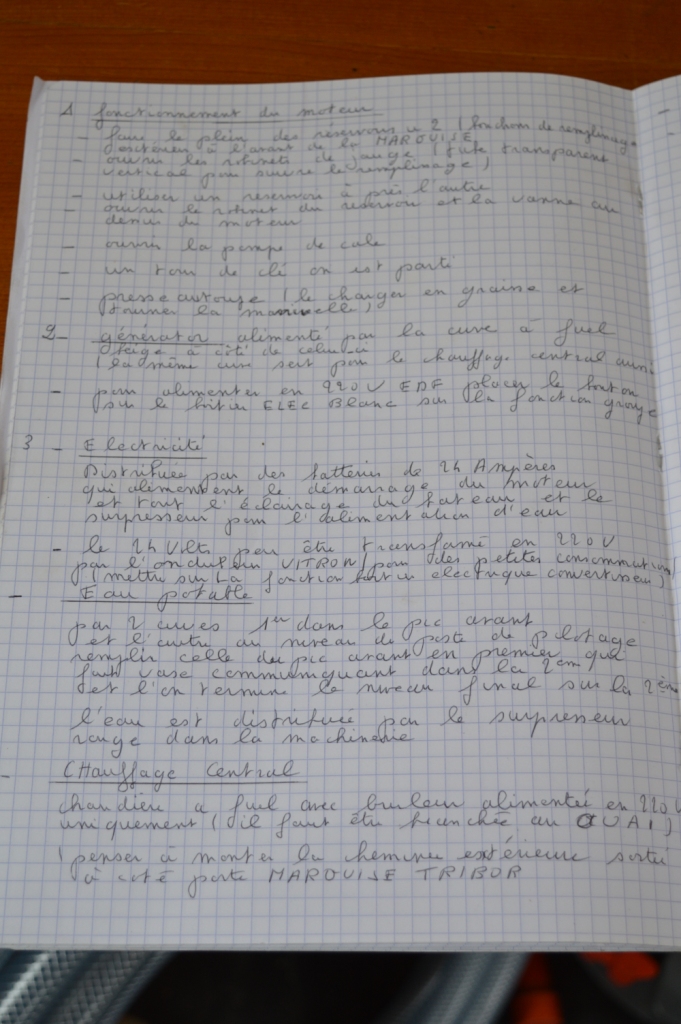 1 fonctionnement du moteur
- faire le plein des réservoirs 2 (bouchons de remplissage
extérieur à l'avant de la MARQUISE
- ouvrir les robinets de jauge (tube transparent
vertical pour suivre le remplissage)
- utiliser un reservoir après l'autre
- ouvrir le robinet du reservoir et la vanne au
dessus du moteur
- ouvrir la pompe de cale
- un tour de clé on est parti
- presse autoupe (le charger en graisse et
tourner la manivelle)
2 - générator alimenté par la cuve à fuel
située à côté de celui-ci
(la même cuve sert pour le chauffage central aussi
- pour alimenter en 220V EDF placer le bouton
sur le boitier ELEC Blanc sur la fonction groupe
3 - Electricité
Distribuée par des batteries de 24 Ampères
qui alimentent le démarrage du moteur
et tout l'éclairage du bateau et le
surpresseur pour l'alimentation d'eau
- le 24 Volts peu être transfamé en 220V
par l'onduleur VITRON (pour des petites consommations)
(mettre sur La fonction boitier electrique convertisseur)
- Eau potable
par 2 cuves 1er dans le pic avant
et l'autre au niveau du poste de pilotage
remplir celle du pic avant en premier qui
fait vase communiquant dans la 2em
et l'on termine le niveau final sur la 2ème
l'eau est distribuée par le surpresseur
rouge dans la machinerie
- CHauffage Central
chaudière a fuel avec bruleur alimentée en 220V
uniquement (il faut être branchée au QUAI)
(penser à monter la cheminée extérieure sortie
à coté porte MARQUISE TRIBOR